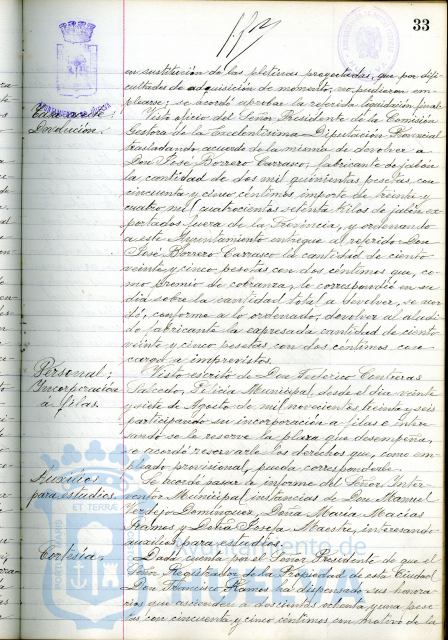 33
en sustitución de las pletinas proyectadas, que por difi-
cultades de adquisición de momento, no pudieron em-
plearse; se acordó aprobar la referida liquidación final.
Visto oficio del Señor Presidente de la Comisión
Devolución.
Gestora de la Excelentísima Diputación Provincial
trasladando acuerdo de la misma de devolver a
Don José Borrero Carrasco, fabricante de jabón
la cantidad de dos mil quinientas pesetas con
cincuenta y cinco céntimos, importe de treinta y
cuatro mil cuatrocientos setenta kilos de jabón ex-
portados fuera de la Provincia, y ordenando
a este Ayuntamiento entregue al referido Don
José Borrero Carrasco la cantidad de ciento
veinte y cinco pesetas con dos céntimos que, co-
mo premio de cobranza, le correspondió en su
día sobre la cantidad total a devolver, se acor-
dó, conforme a lo ordenado, devolver al aludi-
do fabricante la expresada cantidad de ciento
veinte y cinco pesetas con dos céntimos con
cargo a imprevistos.
Personal;
Incorporación
a filas.
Visto escrito de Don Federico Contreras
Salcedo, Policía Municipal, desde el día veinte
y siete de Agosto de mil novecientos treinta y seis
participando su incorporación a filas e intere-
sando se le reserve la plaza que desempeña,
se acordó reservarle los derechos que, como em-
pleado provisional, pueda corresponderle.
Auxilios
para estudios
Se acordó pasar a informe del Señor Inter-
ventor Municipal instancias de Don Manuel
Verdejo Domínguez, Doña María Macías
Ramos y Doña Josefa Maestre, interesando
auxilios para estudios.
Cortesía.
Dada cuenta por el Señor Presidente de que el
Señor Registrador de la Propiedad de esta Ciudad
Don Francisco Ramos ha dispensado sus honora-
rios que ascienden a doscientas ochenta y una pese-
tas con cincuenta y cinco céntimos con motivo de la
ET TERRAE
Ayuntamiento de